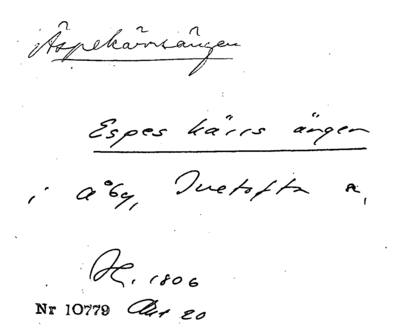 Äspekärrsängen
Espes kärrs ängen
i Åby, Ivetofta
H. 1806
Nr 10779 Akt 20